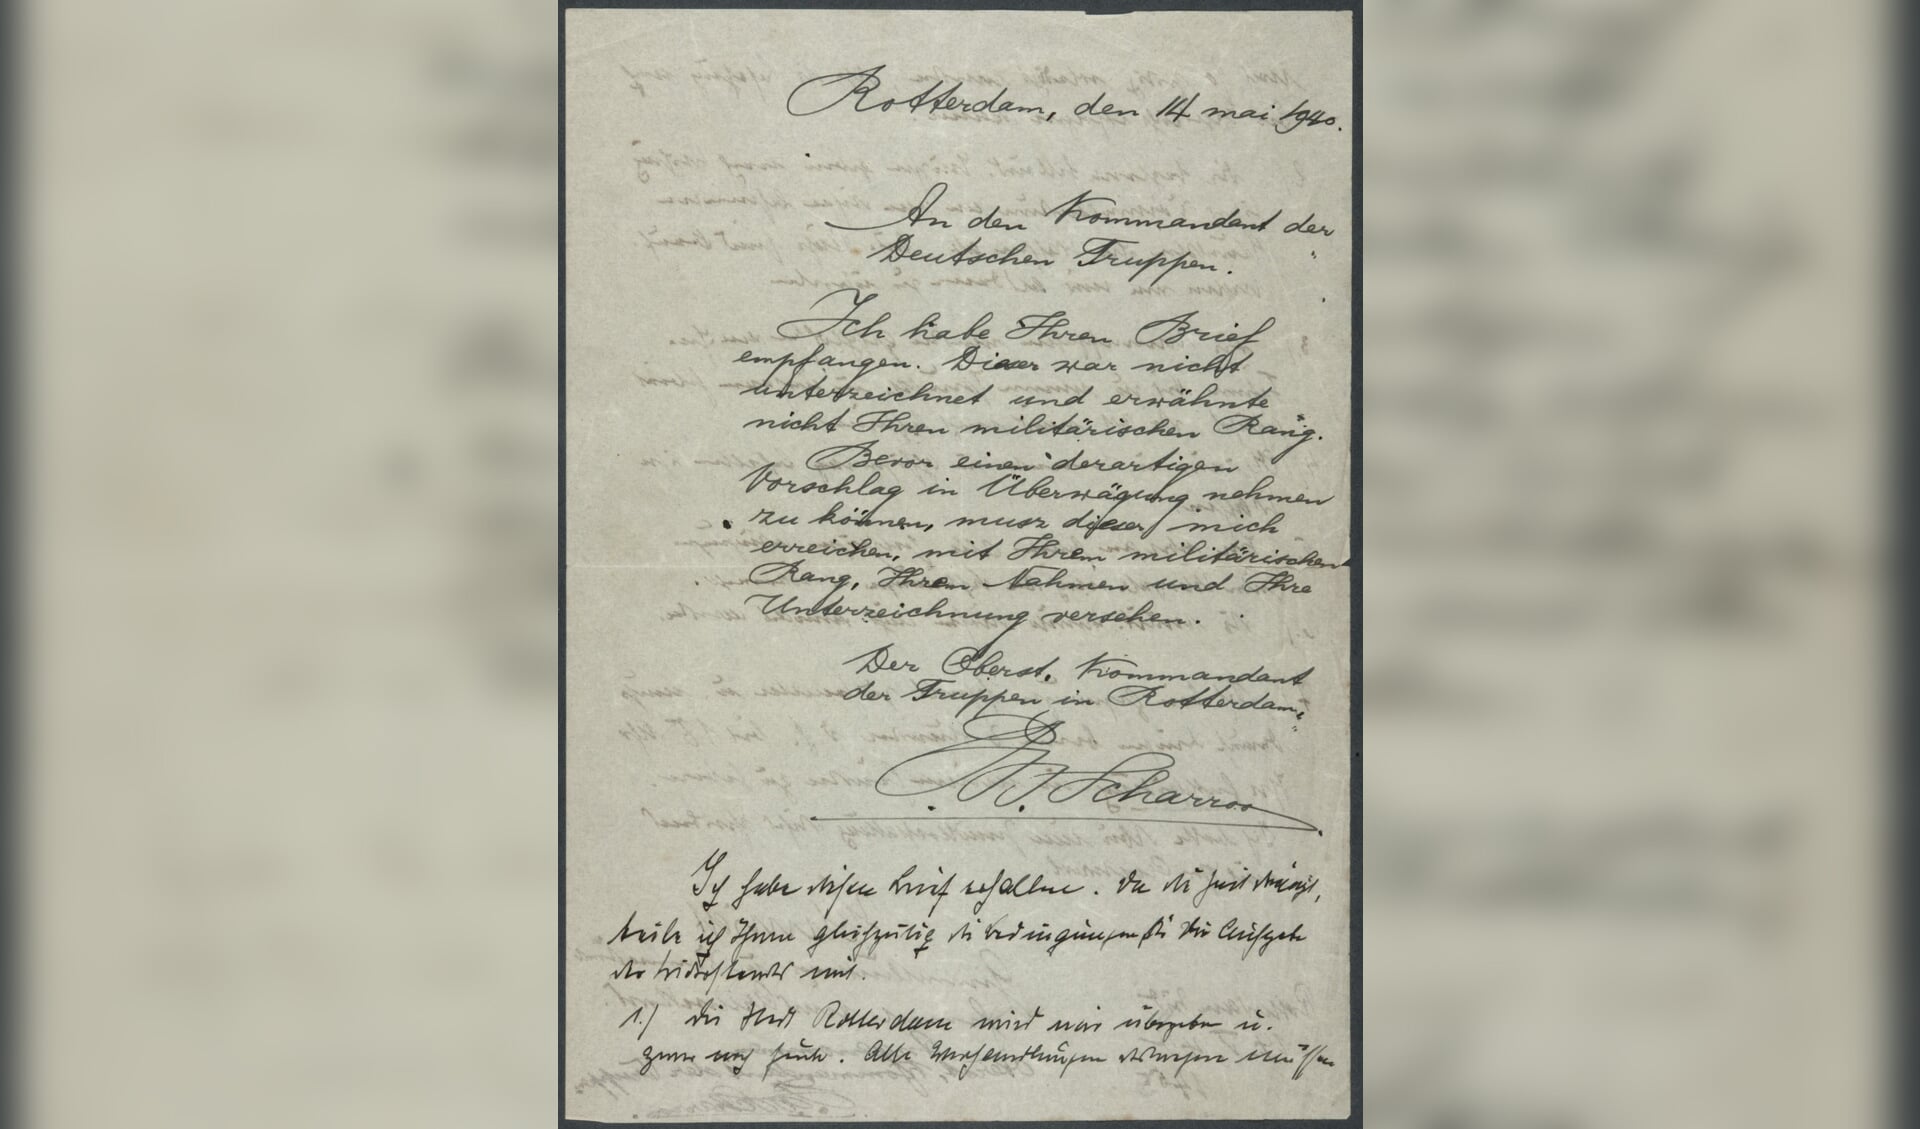 Rotterdam, den 14 mai 1940.
An den Kommandant der
Deutschen Truppen.
Ich habe Ihren Brief
empfangen. Dieser war nicht
unterzeichnet und erwähnte
nicht Ihren militärischen Rang.
Bevor einen derartigen
Vorschlag in Überwägung nehmen
zu können, musz dieser mich
erreichen, mit Ihrem militärischen
Rang, Ihrem Nahmen und Ihre
Unterzeichnung versehen.
Der Oberst, Kommandant
der Truppen in Rotterdam,
P. Scharroo
Ich habe diesen Brief erhalten. Da die Zeit drängt,
teile ich Ihnen gleichzeitig die Bedingungen für die Aufgabe
des Widerstandes mit.
1.) Die Stadt Rotterdam wird mir übergeben u.
zwar noch heute. Alle Verhandlungen müssen